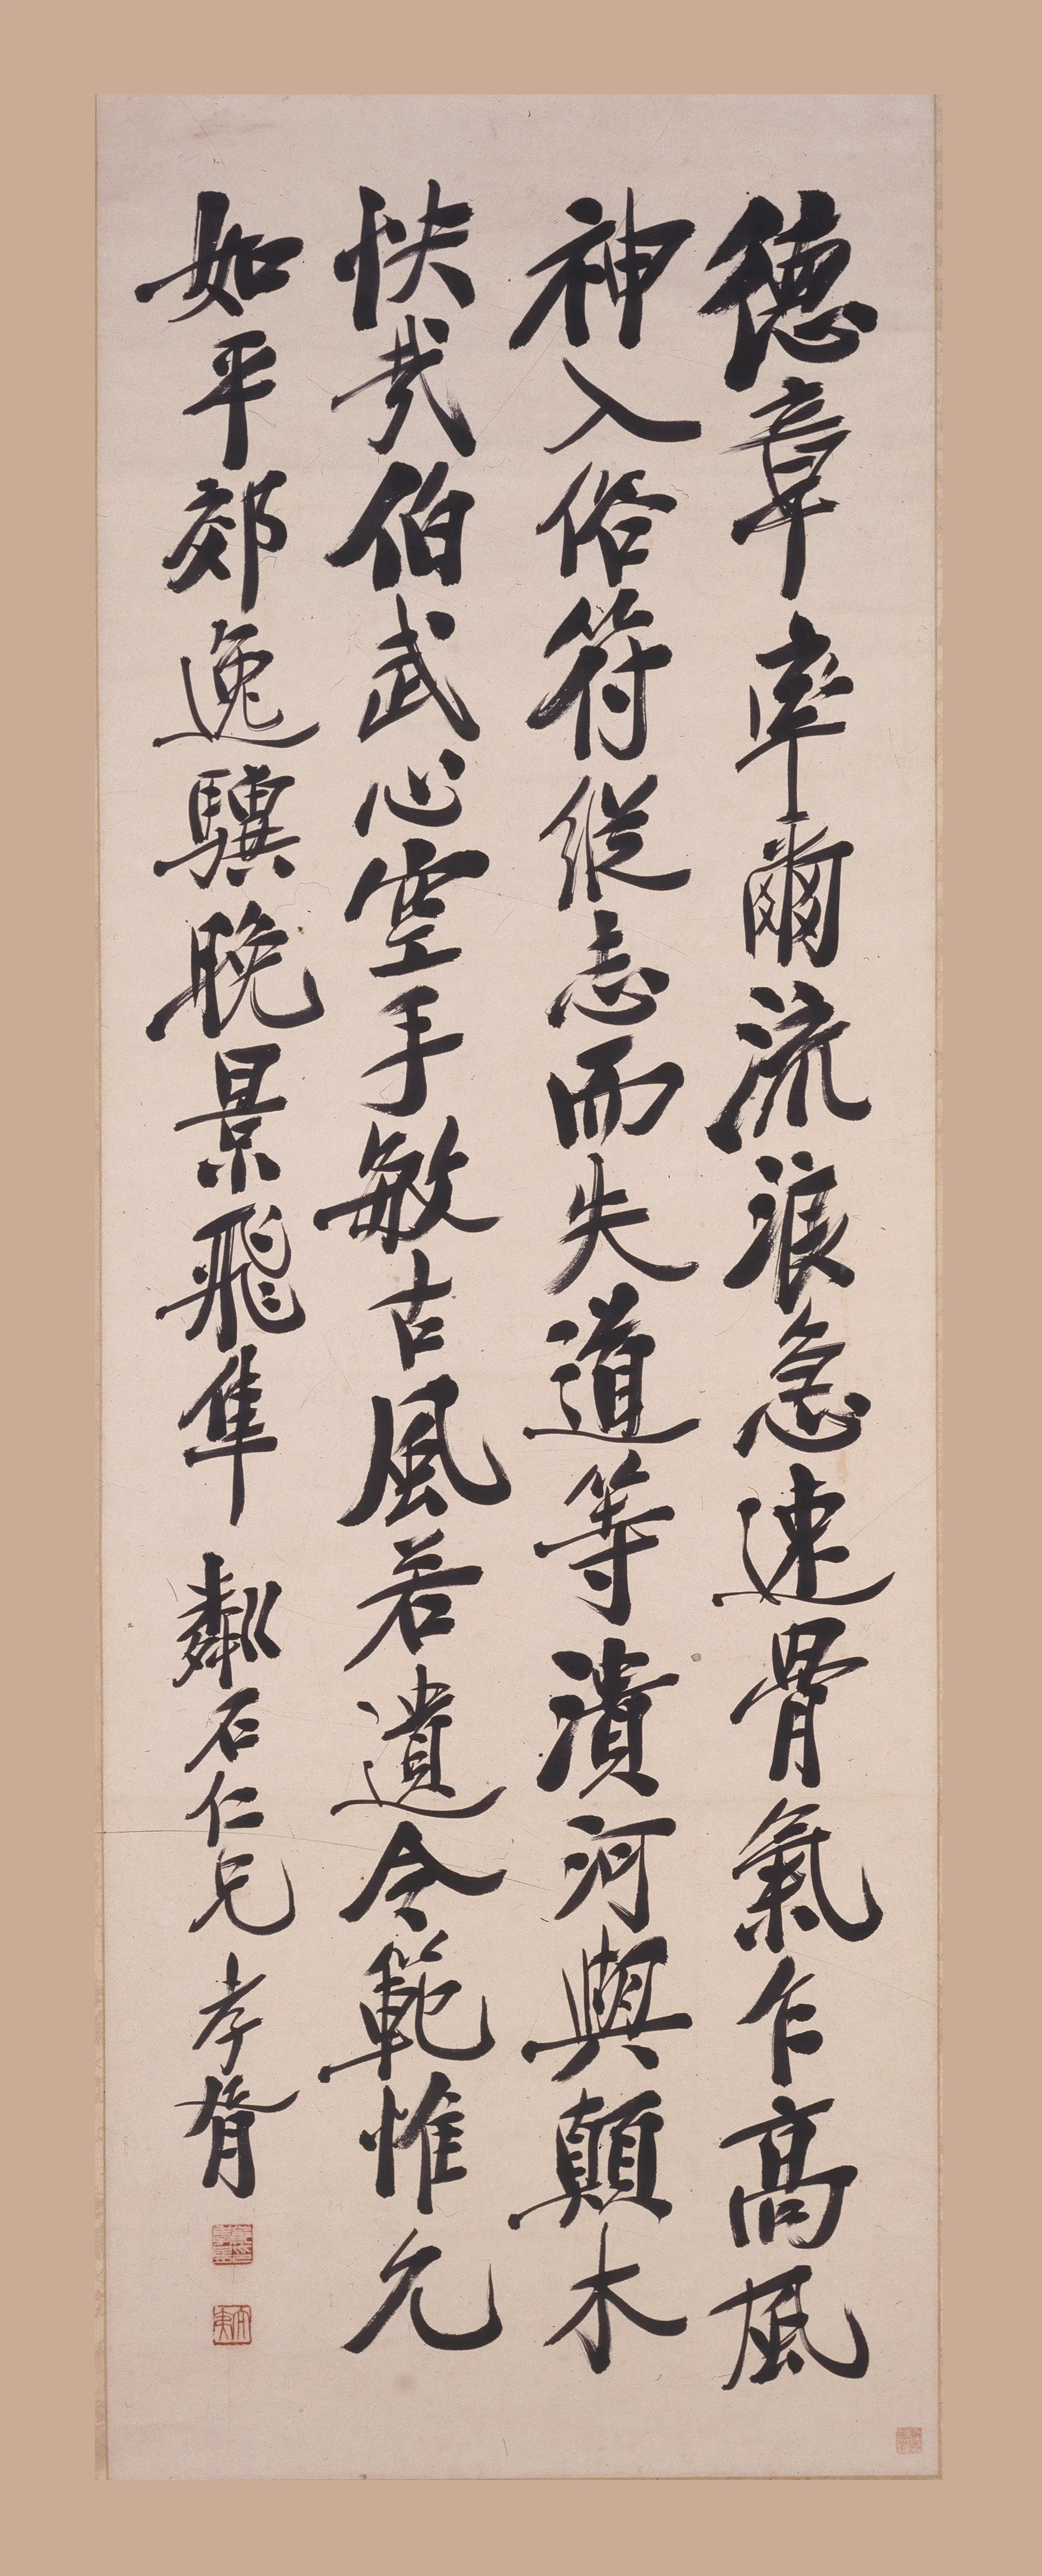 德章率爾流浪急速骨氣乍高風
神入俗符縱志而失道等潰河與顛木
快哉伯武心空手敏古風若遺令範惟允
如平郊逸驥晚景飛隼 粼石仁兄 孝胥